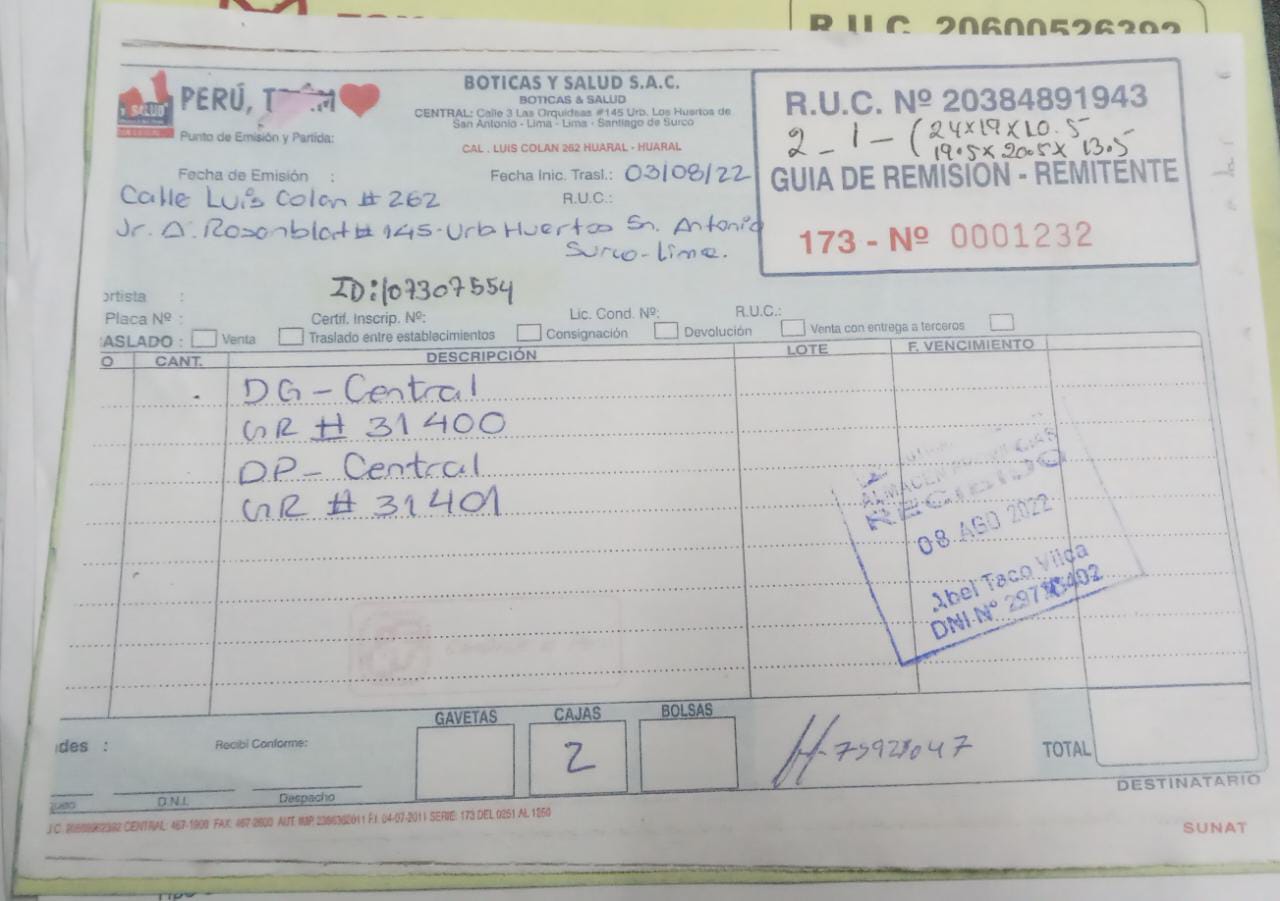 R.U.C. 20600526392
SALUD
PERÚ, T
BOTICAS Y SALUD S.A.C.
BOTICAS & SALUD
CENTRAL: Calle 3 Las Orquideas #145 Urb. Los Huertos de
San Antonio - Lima - Lima - Santiago de Surco
CAL . LUIS COLAN 262 HUARAL - HUARAL
Punto de Emisión y Partida:
R.U.C. Nº 20384891943
2 _ 1 - (24x19x10.5
19.5x20.5x13.5
GUIA DE REMISION - REMITENTE
173 - Nº 0001232
Fecha de Emisión :
Fecha Inic. Trasl.: 03/08/22
Calle Luis Colan # 262
R.U.C.:
Jr. A. Rosenblat # 145-Urb Huertos Sn. Antonio
Surco-Lima.
ID:107307554
ortista :
Placa Nº :
Certif. Inscrip. Nº:
Lic. Cond. Nº:
R.U.C.:
ASLADO :
Venta
Traslado entre establecimientos
Consignación
Devolución
Venta con entrega a terceros
O CANT. DESCRIPCIÓN LOTE F. VENCIMIENTO
DG - Central
GR # 31400
DP - Central
GR # 31401
ALMACEN
RECIBIDO
08 AGO 2022
Abel Taco Vilca
DNI Nº
GAVETAS CAJAS BOLSAS
2
des :
Recibí Conforme:
73928047
TOTAL
D.N.I.
Despacho
DESTINATARIO
CENTRAL: 467-1900 FAX: 467-2600 AUT. IMP. F.I. 04-07-2011 SERIE: 173 DEL 0251 AL 1250
SUNAT